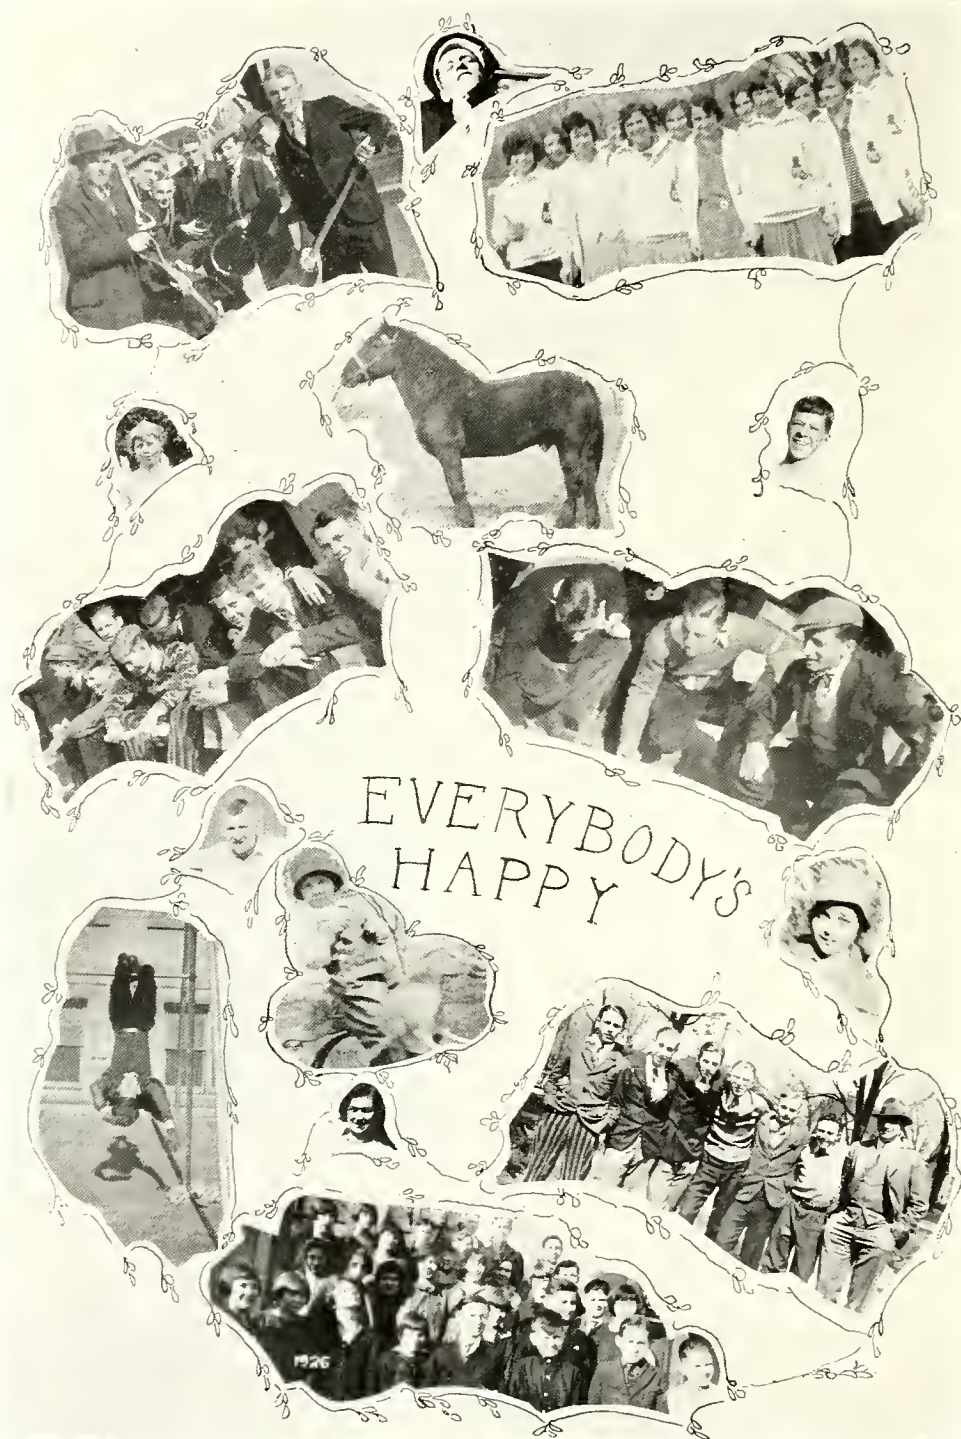 EVERYBODY'S
HAPPY
1926